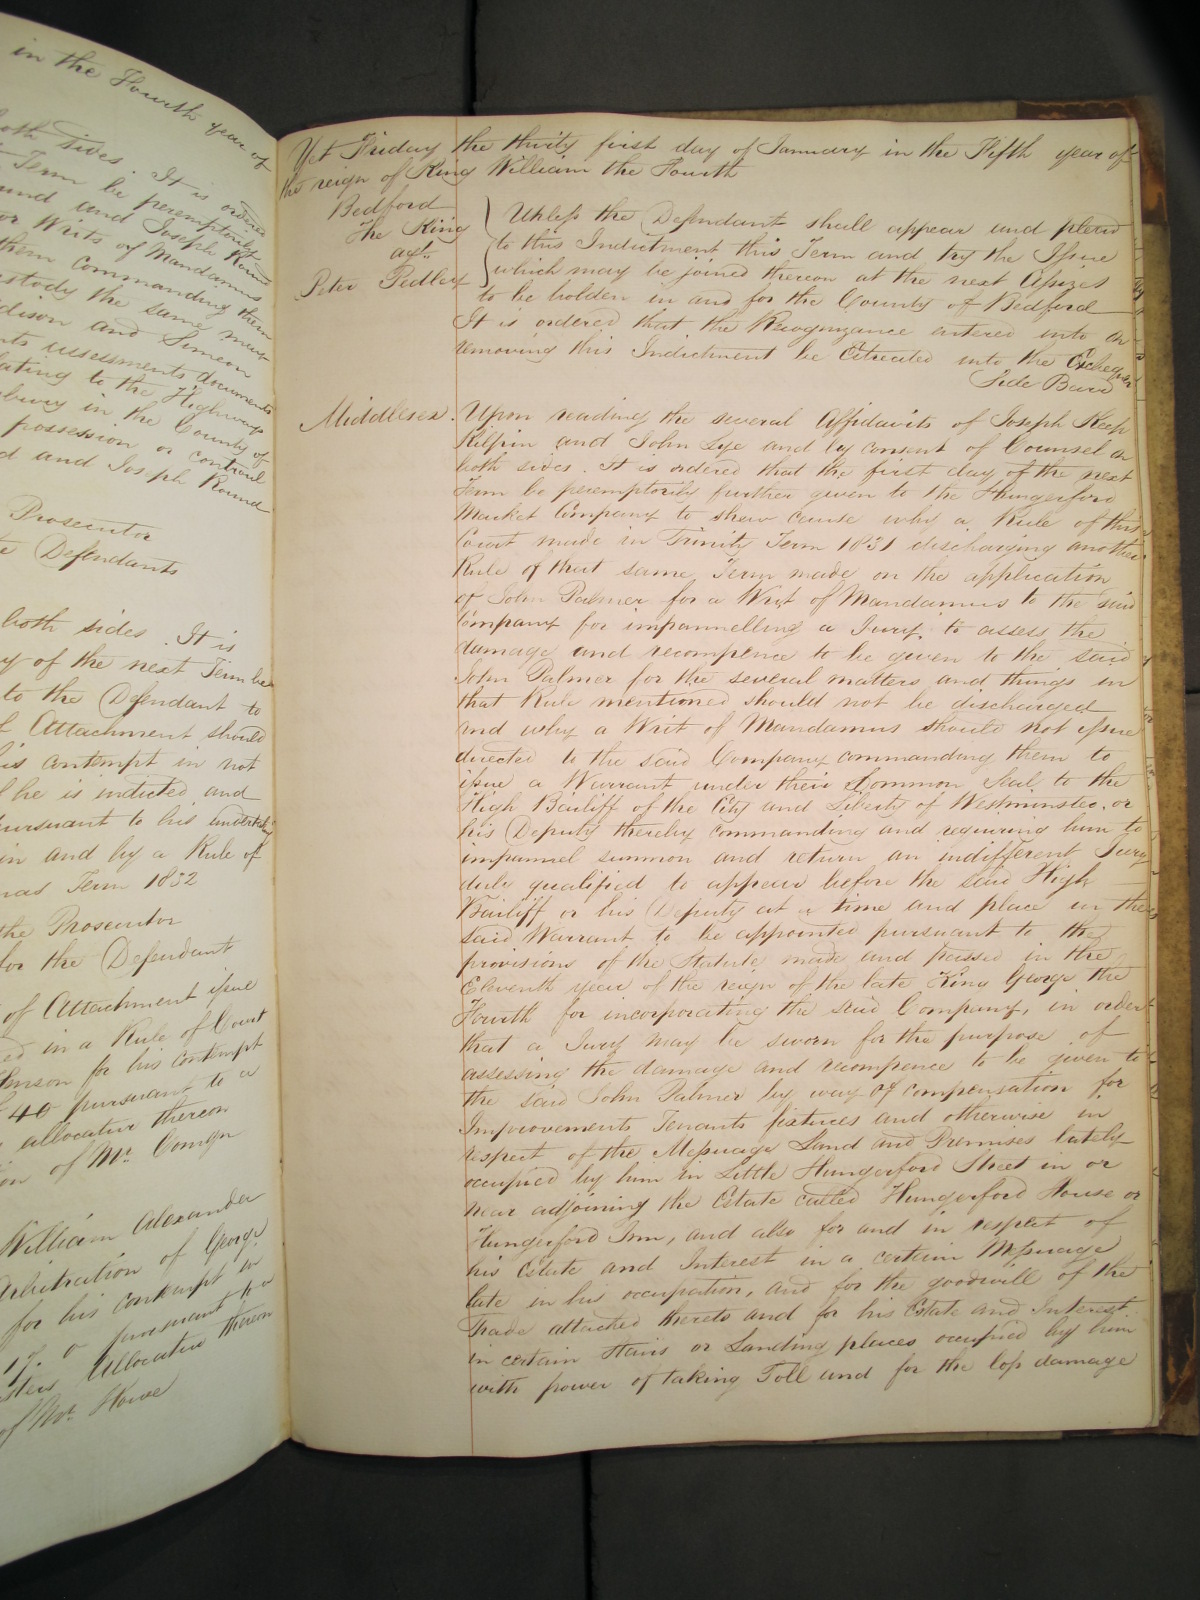 in the Fourth year of
both sides. It is ordered
Term be peremptorily
and Joseph Round
or Writs of Mandamus
them commanding them
custody the same
and Simeon
assessments documents
relating to the Highways
in the County of
possession or controul
and Joseph Round
Prosecutor
Defendants
both sides. It is
of the next Term be
to the Defendant to
Attachment should
his contempt in not
he is indicted and
pursuant to his undertaking
in and by a Rule of
Term 1832
the Prosecutor
for the Defendant
of Attachment issue
in a Rule of Court
for his contempt
40 pursuant to a
allocatur thereon
of Mr.
William Alexander
Arbitration of George
for his contempt in
17. 0 pursuant to a
Allocatur thereon
of Mr. Howe
Yet Friday the thirty first day of January in the Fifth year of
the reign of King William the Fourth
Bedford
The King
agt.
Peter Pedley
Unless the Defendant shall appear and plead
to this Indictment this Term and try the Issue
which may be joined thereon at the next Assizes
to be holden in and for the County of Bedford
It is ordered that the Recognizance entered into on
removing this Indictment be Estreated into the Exchequer
Side Bar
Middlesex. Upon reading the several Affidavits of Joseph Keep
Kilpin and John Lye and by consent of Counsel on
both sides. It is ordered that the first day of the next
Term be peremptorily further given to the Hungerford
Market Company to shew cause why a Rule of this
Court made in Trinity Term 1831 discharging another
Rule of that same Term made on the application
of John Palmer for a Writ of Mandamus to the said
Company for impannelling a Jury, to assess the
damage and recompence to be given to the said
John Palmer for the several matters and things in
that Rule mentioned should not be discharged
and why a Writ of Mandamus should not issue
directed to the said Company commanding them to
issue a Warrant under their Common Seal to the
High Bailiff of the City and Liberty of Westminster, or
his Deputy thereby commanding and requiring him to
impannel summon and return an indifferent Jury
duly qualified to appear before the said High
Bailiff or his Deputy at a time and place in the
said Warrant to be appointed pursuant to the
provisions of the Statute made and passed in the
Eleventh year of the reign of the late King George the
Fourth for incorporating the said Company, in order
that a Jury may be sworn for the purpose of
assessing the damage and recompence to be given to
the said John Palmer by way of compensation for
Improvements Tenants fixtures and otherwise in
respect of the Messuage Land and Premises lately
occupied by him in Little Hungerford Street in or
near adjoining the Estate called Hungerford House or
Hungerford Inn, and also for and in respect of
his Estate and Interest in a certain Messuage
late in his occupation, and for the goodwill of the
Trade attached thereto and for his Estate and Interest
in certain Stairs or Landing places occupied by him
with power of taking Toll and for the loss damage